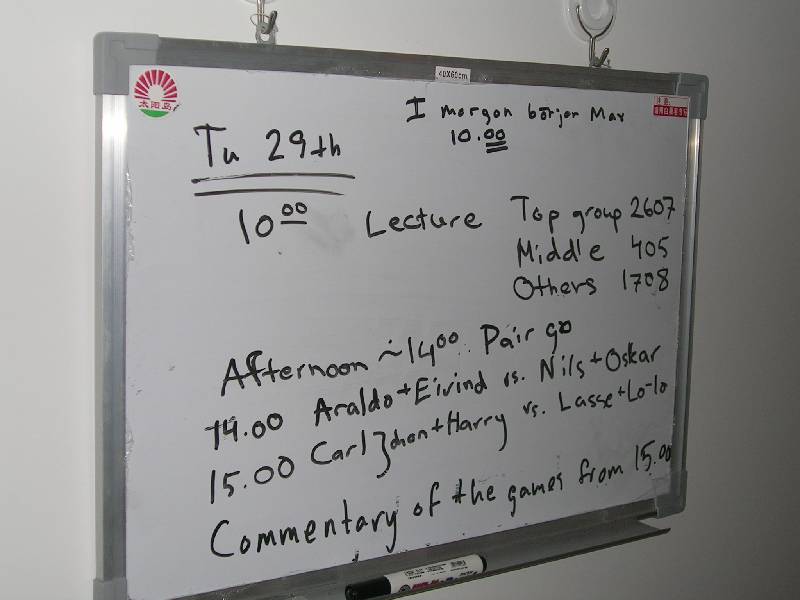 40X60cm
太阳岛
I morgon börjar Max
10.00
Tu 29th
10 00 Lecture Top group 2607
Middle 405
Others 1708
Afternoon ~14 00 Pair go
14.00 Araldo+Eivind vs. Nils+Oskar
15.00 Carl Johan+Harry vs. Lasse+Lo-lo
Commentary of the games from 15.00